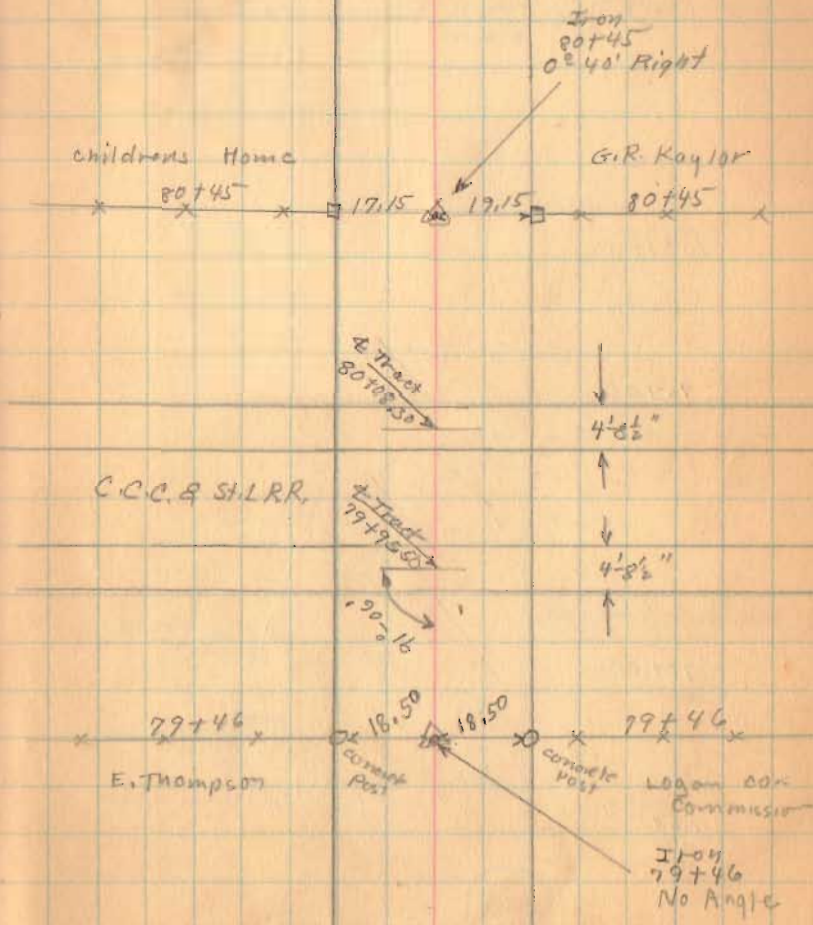 Iron
80+45
0° 40' Right
Childrens Home
G.R. Kaylor
80+45
17.15
19.15
80+45
℄ Tract
80+08.30
4'-8½"
C.C.C. & St.L RR.
℄ Tract
79+95.50
4'-8½"
79+46
18.50
18.50
79+46
concrete
Post
concrete
Post
E. Thompson
Logan
Commission
Iron
79+46
No Angle